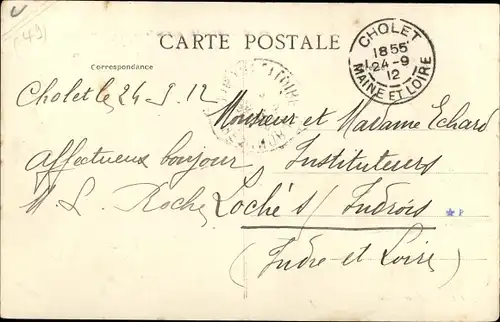 (49)
CARTE POSTALE
Correspondance
CHOLET
18 55
24-9
12
MAINE ET LOIRE
Cholet le 24 9 12
Affectueux bonjour
M. L. Roche
Monsieur et Madame Echard
Instituteurs
Loché s/ Indrois
(Indre et Loire)